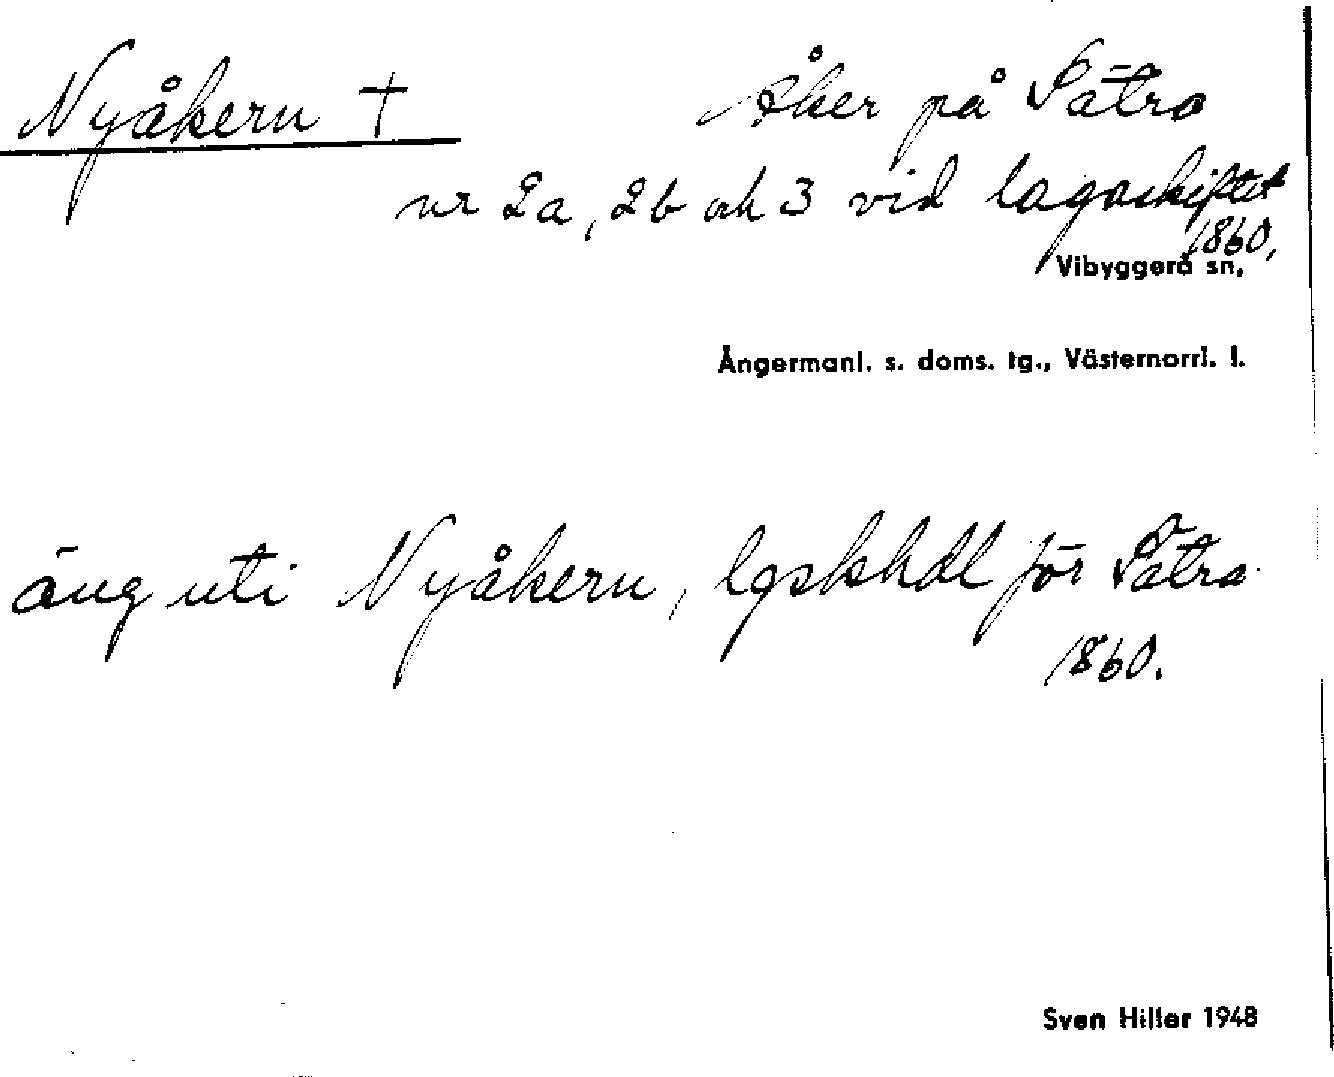 Nyåkern † Åker på Sätra
nr 2a, 2b och 3 vid lagaskiftet
1860,
Vibyggerå sn.
Ångermanl. s. doms. tg., Västernorrl. l.
äng uti Nyåkern, lgskhdl för Sätra
1860.
Sven Hiller 1948